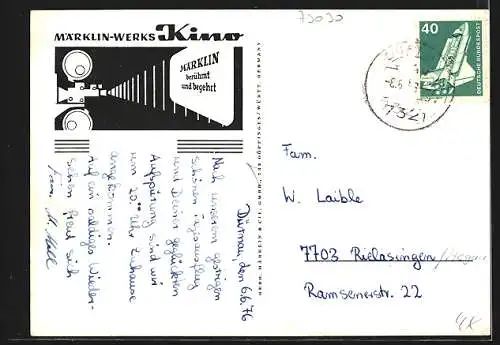 73030
MÄRKLIN-WERKS Kino
MÄRKLIN
berühmt
und begehrt
GEBR. MÄRKLIN & CIE. GMBH, 734 GÖPPINGEN/WÜRTT. GERMANY
40
DEUTSCHE BUNDESPOST
7321
Dürnau, den 6.6.76
Nach unserem gestrigen
schönen Tagesausflug
und Deiner geglückten
Aufspürung sind wir
um 20⁰⁰ Uhr zuhause
angekommen.
Auf ein baldiges Wieder-
sehen freut sich
Fam.
Fam.
W. Laible
7703 Rielasingen
Ramsenerstr. 22